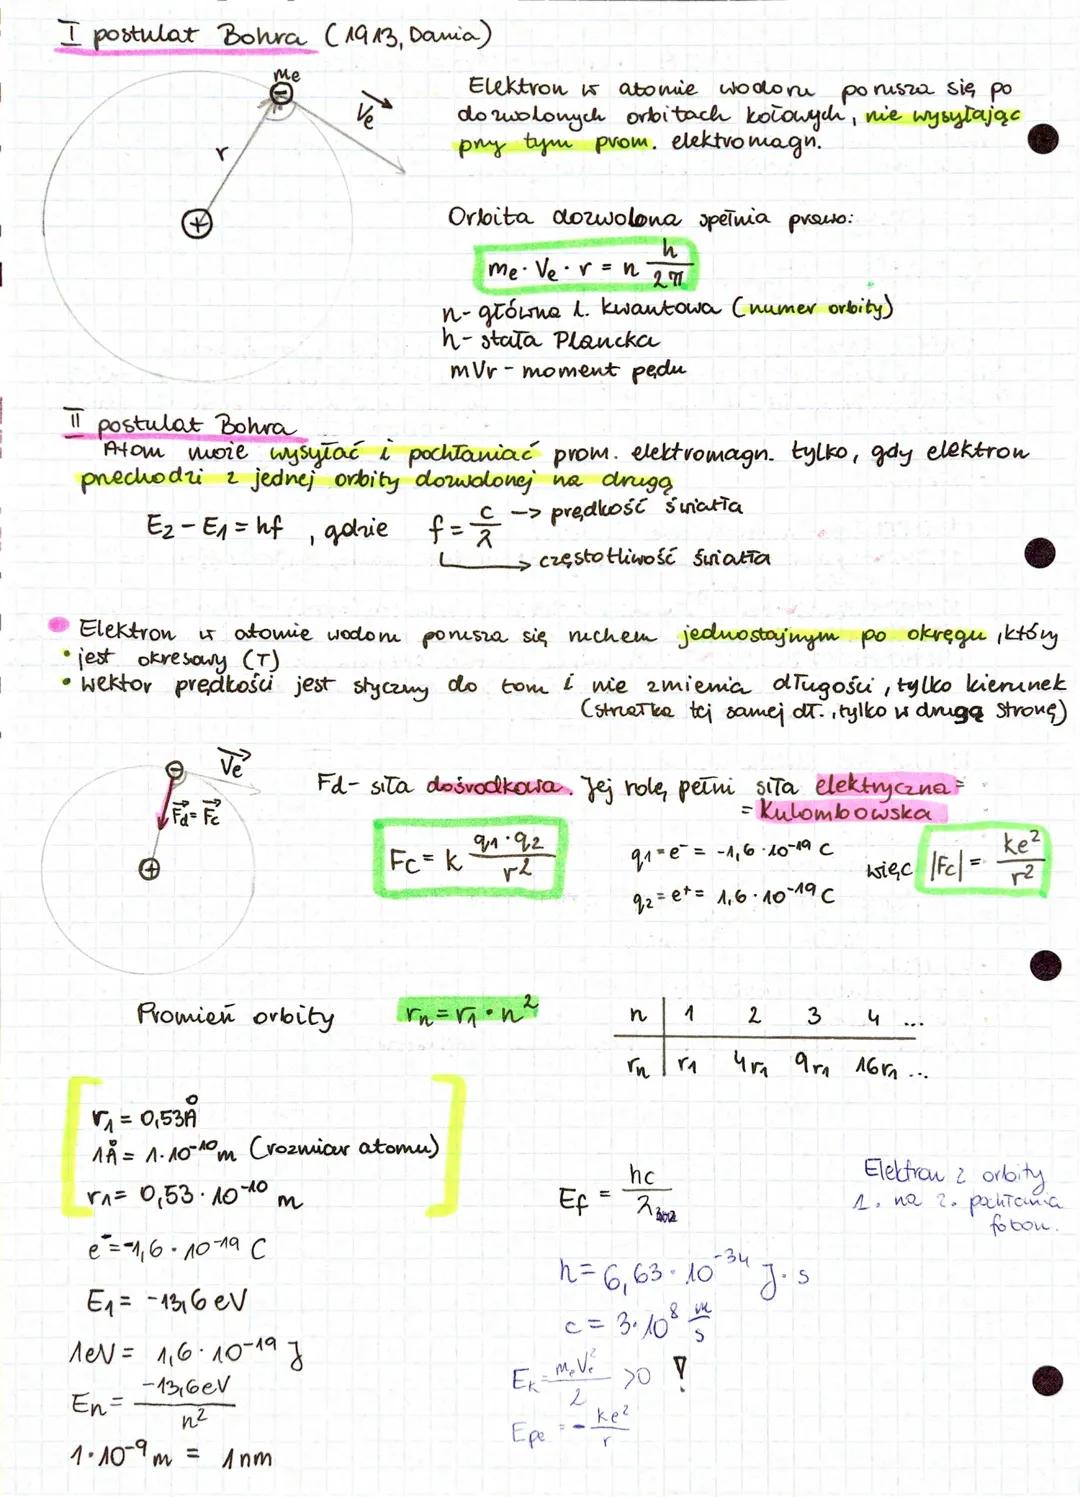 I postulat Bohra (1913, Dania)
me
Ve
r
Elektron w atomie wodoru porusza się po
dozwolonych orbitach kołowych, nie wysyłając
przy tym prom. elektromagn.
Orbita dozwolona spełnia prawo:
me · Ve · r = n h/2π
n - główna l. kwantowa (numer orbity)
h - stała Plancka
mVr - moment pędu
II postulat Bohra
Atom może wysyłać i pochłaniać prom. elektromagn. tylko, gdy elektron
przechodzi z jednej orbity dozwolonej na drugą
E₂ - E₁ = hf , gdzie f = c/λ -> prędkość światła
-> częstotliwość światła
Elektron w atomie wodoru porusza się ruchem jednostajnym po okręgu, który
• jest okresowy (T)
• wektor prędkości jest styczny do toru i nie zmienia długości, tylko kierunek
(strzałka tej samej dł., tylko w drugą stronę)
Ve
Fd = Fc
Fd - siła dośrodkowa. Jej rolę pełni siła elektryczna =
= Kulombowska
Fc = k q₁·q₂/r²
q₁ = e⁻ = -1,6 · 10⁻¹⁹ C
q₂ = e⁺ = 1,6 · 10⁻¹⁹ C
więc |Fc| = ke²/r²
Promień orbity rn = r₁ · n²
n 1 2 3 4 ...
rn r₁ 4r₁ 9r₁ 16r₁ ...
r₁ = 0,53Å
1Å = 1·10⁻¹⁰ m (rozmiar atomu)
r₁ = 0,53 · 10⁻¹⁰ m
e⁻ = -1,6 · 10⁻¹⁹ C
E₁ = -13,6 eV
1eV = 1,6 · 10⁻¹⁹ J
En = -13,6eV/n²
1·10⁻⁹ m = 1nm
Ef = hc/λ
Elektron z orbity
1. na 2. pochłania
foton.
h = 6,63 · 10⁻³⁴ J·s
c = 3·10⁸ m/s
Ek = meVe²/2 >0 !
Epe = - ke²/r